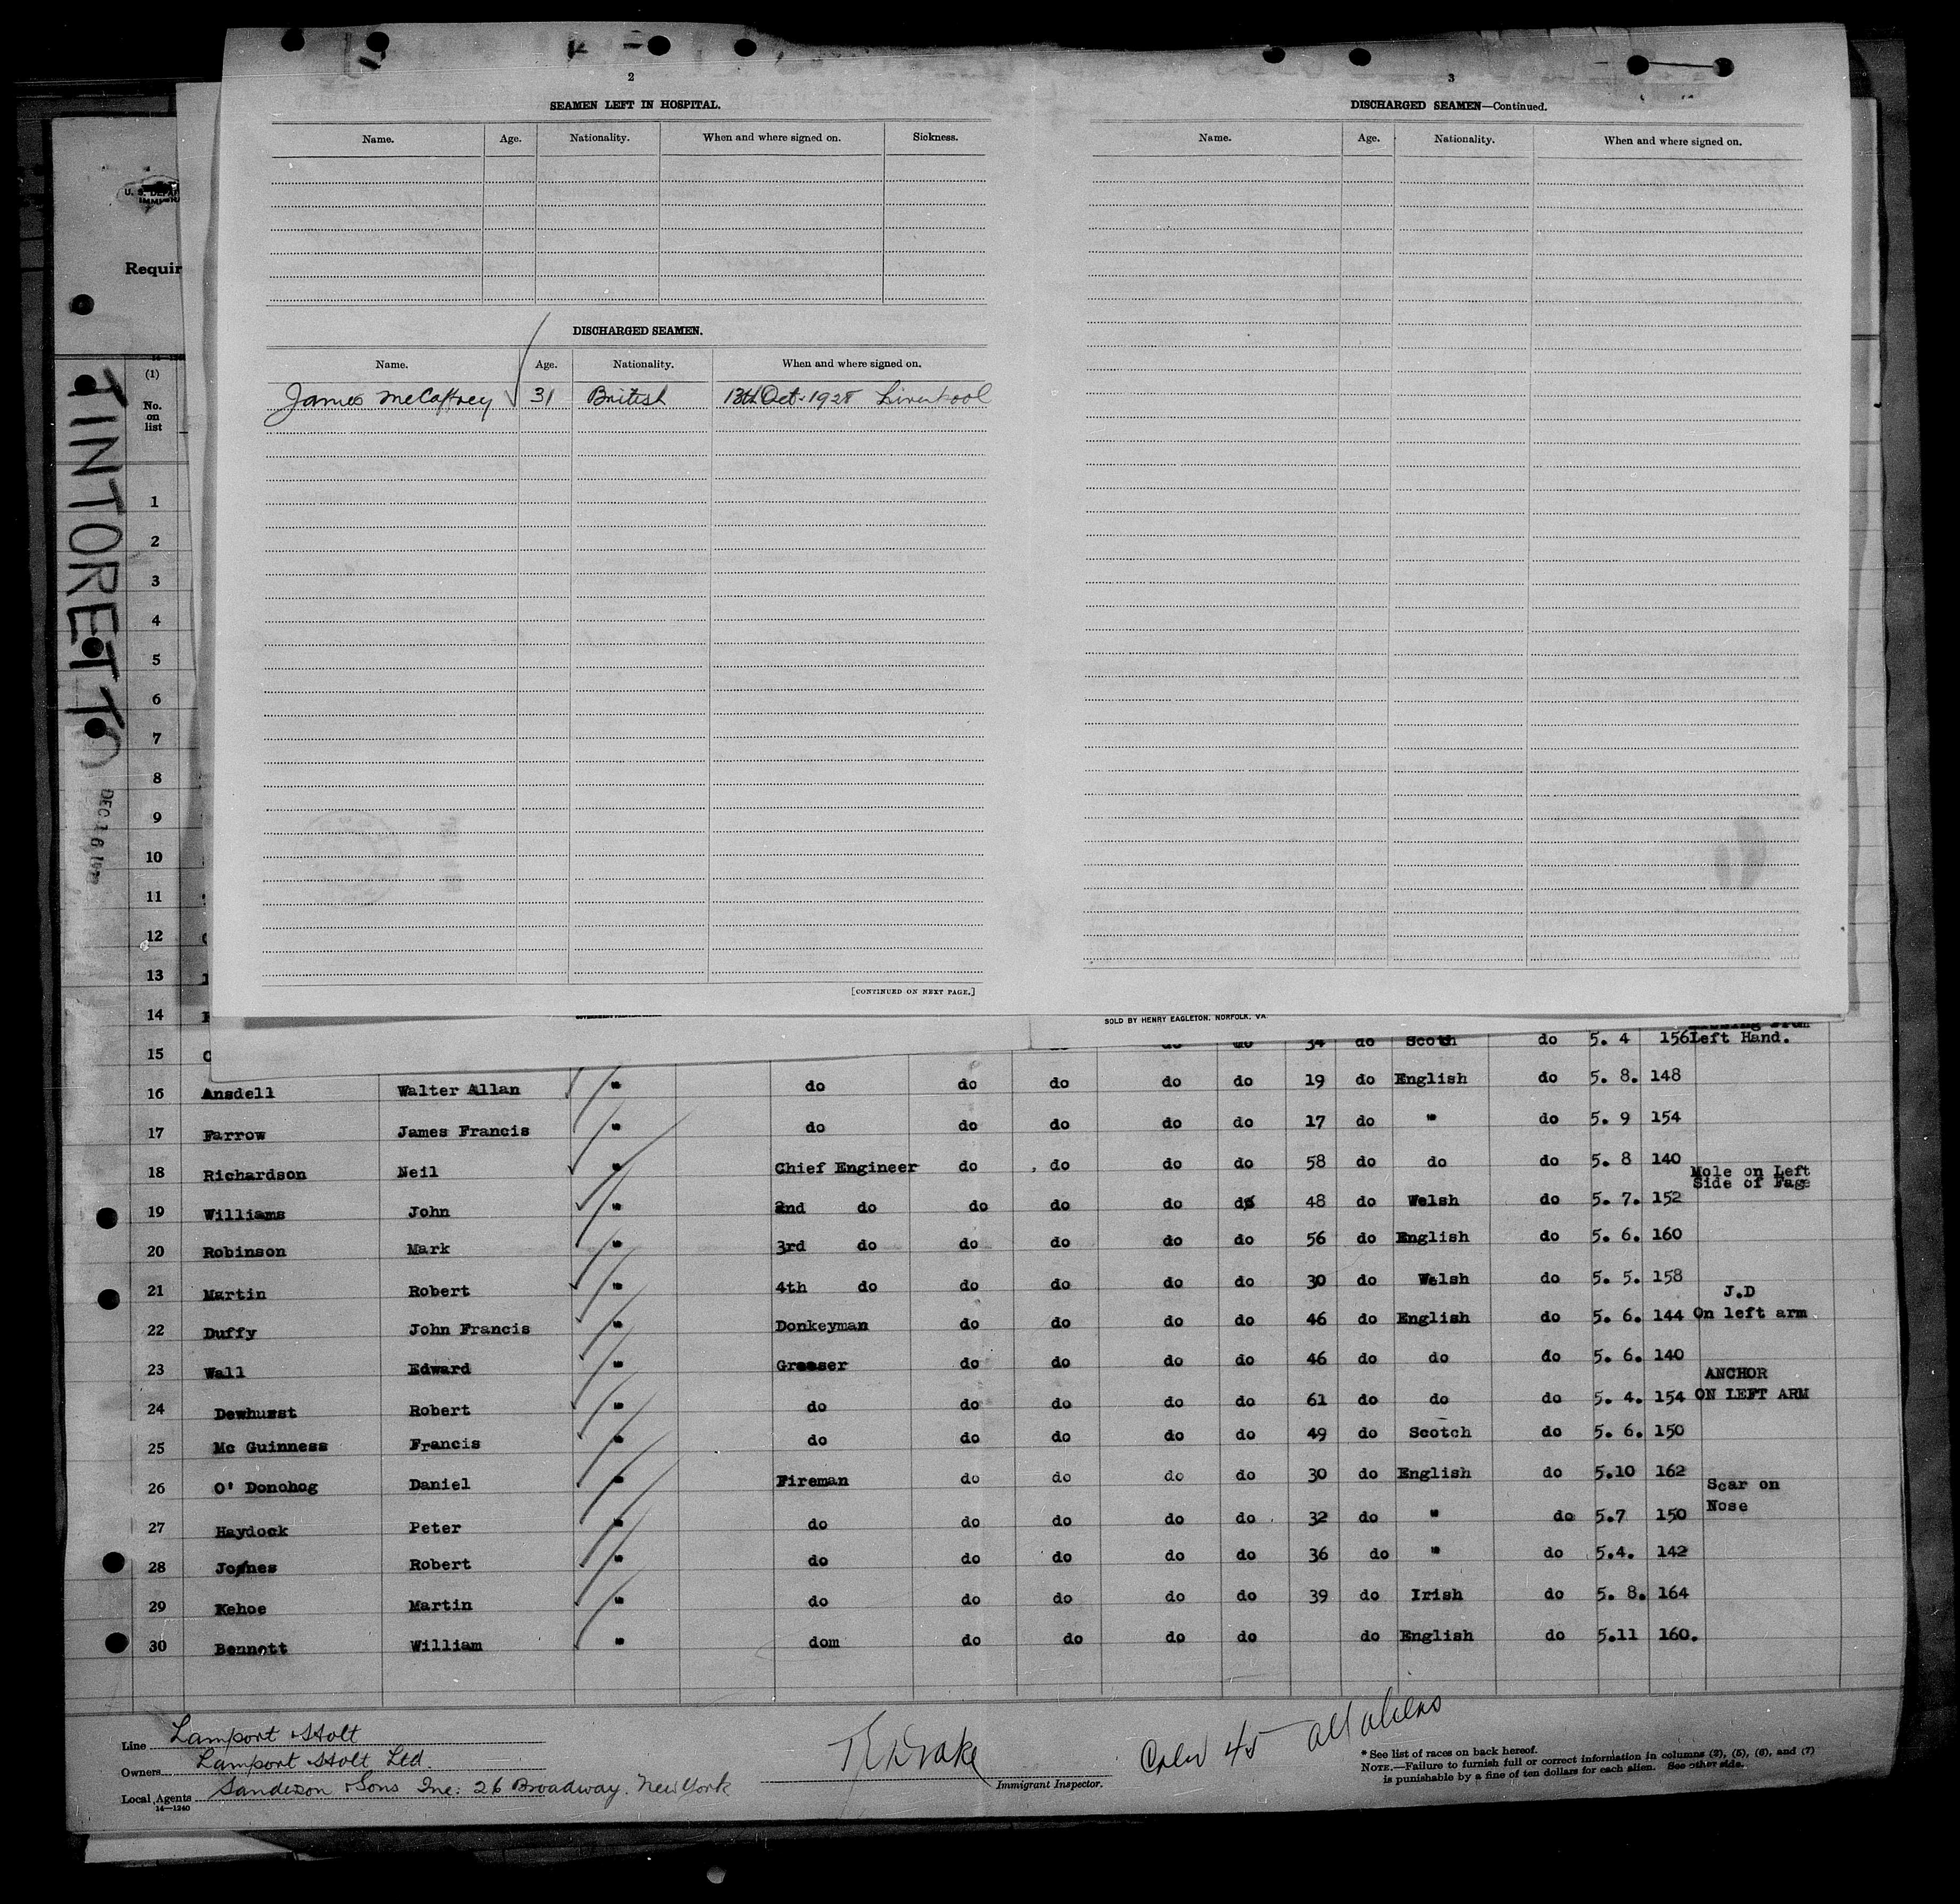 2
SEAMEN LEFT IN HOSPITAL.
Name. Age. Nationality. When and where signed on. Sickness.
DISCHARGED SEAMEN.
Name. Age. Nationality. When and where signed on.
James McCaffrey 31 British 13th Oct. 1928 Liverpool
[CONTINUED ON NEXT PAGE.]
3
DISCHARGED SEAMEN—Continued.
Name. Age. Nationality. When and where signed on.
SOLD BY HENRY EAGLETON, NORFOLK, VA.
Requir
TINTORETTO
DEC 16
(1)
No.
on
list
1
2
3
4
5
6
7
8
9
10
11
12
13
14
15 do do 34 do Scotch do 5. 4 156 Left Hand.
16 Ansdell Walter Allan " do do do do do 19 do English do 5. 8. 148
17 Farrow James Francis " do do do do do 17 do " do 5. 9 154
18 Richardson Neil " Chief Engineer do do do do 58 do do do 5. 8 140 Mole on Left Side of Fage
19 Williams John " 2nd do do do do do 48 do Welsh do 5. 7. 152
20 Robinson Mark " 3rd do do do do do 56 do English do 5. 6. 160
21 Martin Robert " 4th do do do do do 30 do Welsh do 5. 5. 158
22 Duffy John Francis " Donkeyman do do do do 46 do English do 5. 6. 144 J.D On left arm
23 Wall Edward " Greaser do do do do 46 do do do 5. 6. 140
24 Dewhurst Robert " do do do do do 61 do do do 5. 4. 154 ANCHOR ON LEFT ARM
25 Mc Guinness Francis " do do do do do 49 do Scotch do 5. 6. 150
26 O' Donohog Daniel " Fireman do do do do 30 do English do 5.10 162
27 Haydock Peter " do do do do do 32 do " do 5.7 150 Scar on Nose
28 Jones Robert " do do do do do 36 do " do 5.4. 142
29 Kehoe Martin " do do do do do 39 do Irish do 5. 8. 164
30 Bennett William " dom do do do do do English do 5.11 160.
Line Lamport & Holt
Owners Lamport & Holt Ltd.
Local Agents Sanderson & Sons Inc: 26 Broadway. New York
14—1240
Drake
Immigrant Inspector.
Crew 45 all aliens
* See list of races on back hereof.
NOTE.—Failure to furnish full or correct information in columns (2), (5), (6), and (7)
is punishable by a fine of ten dollars for each alien. See other side.